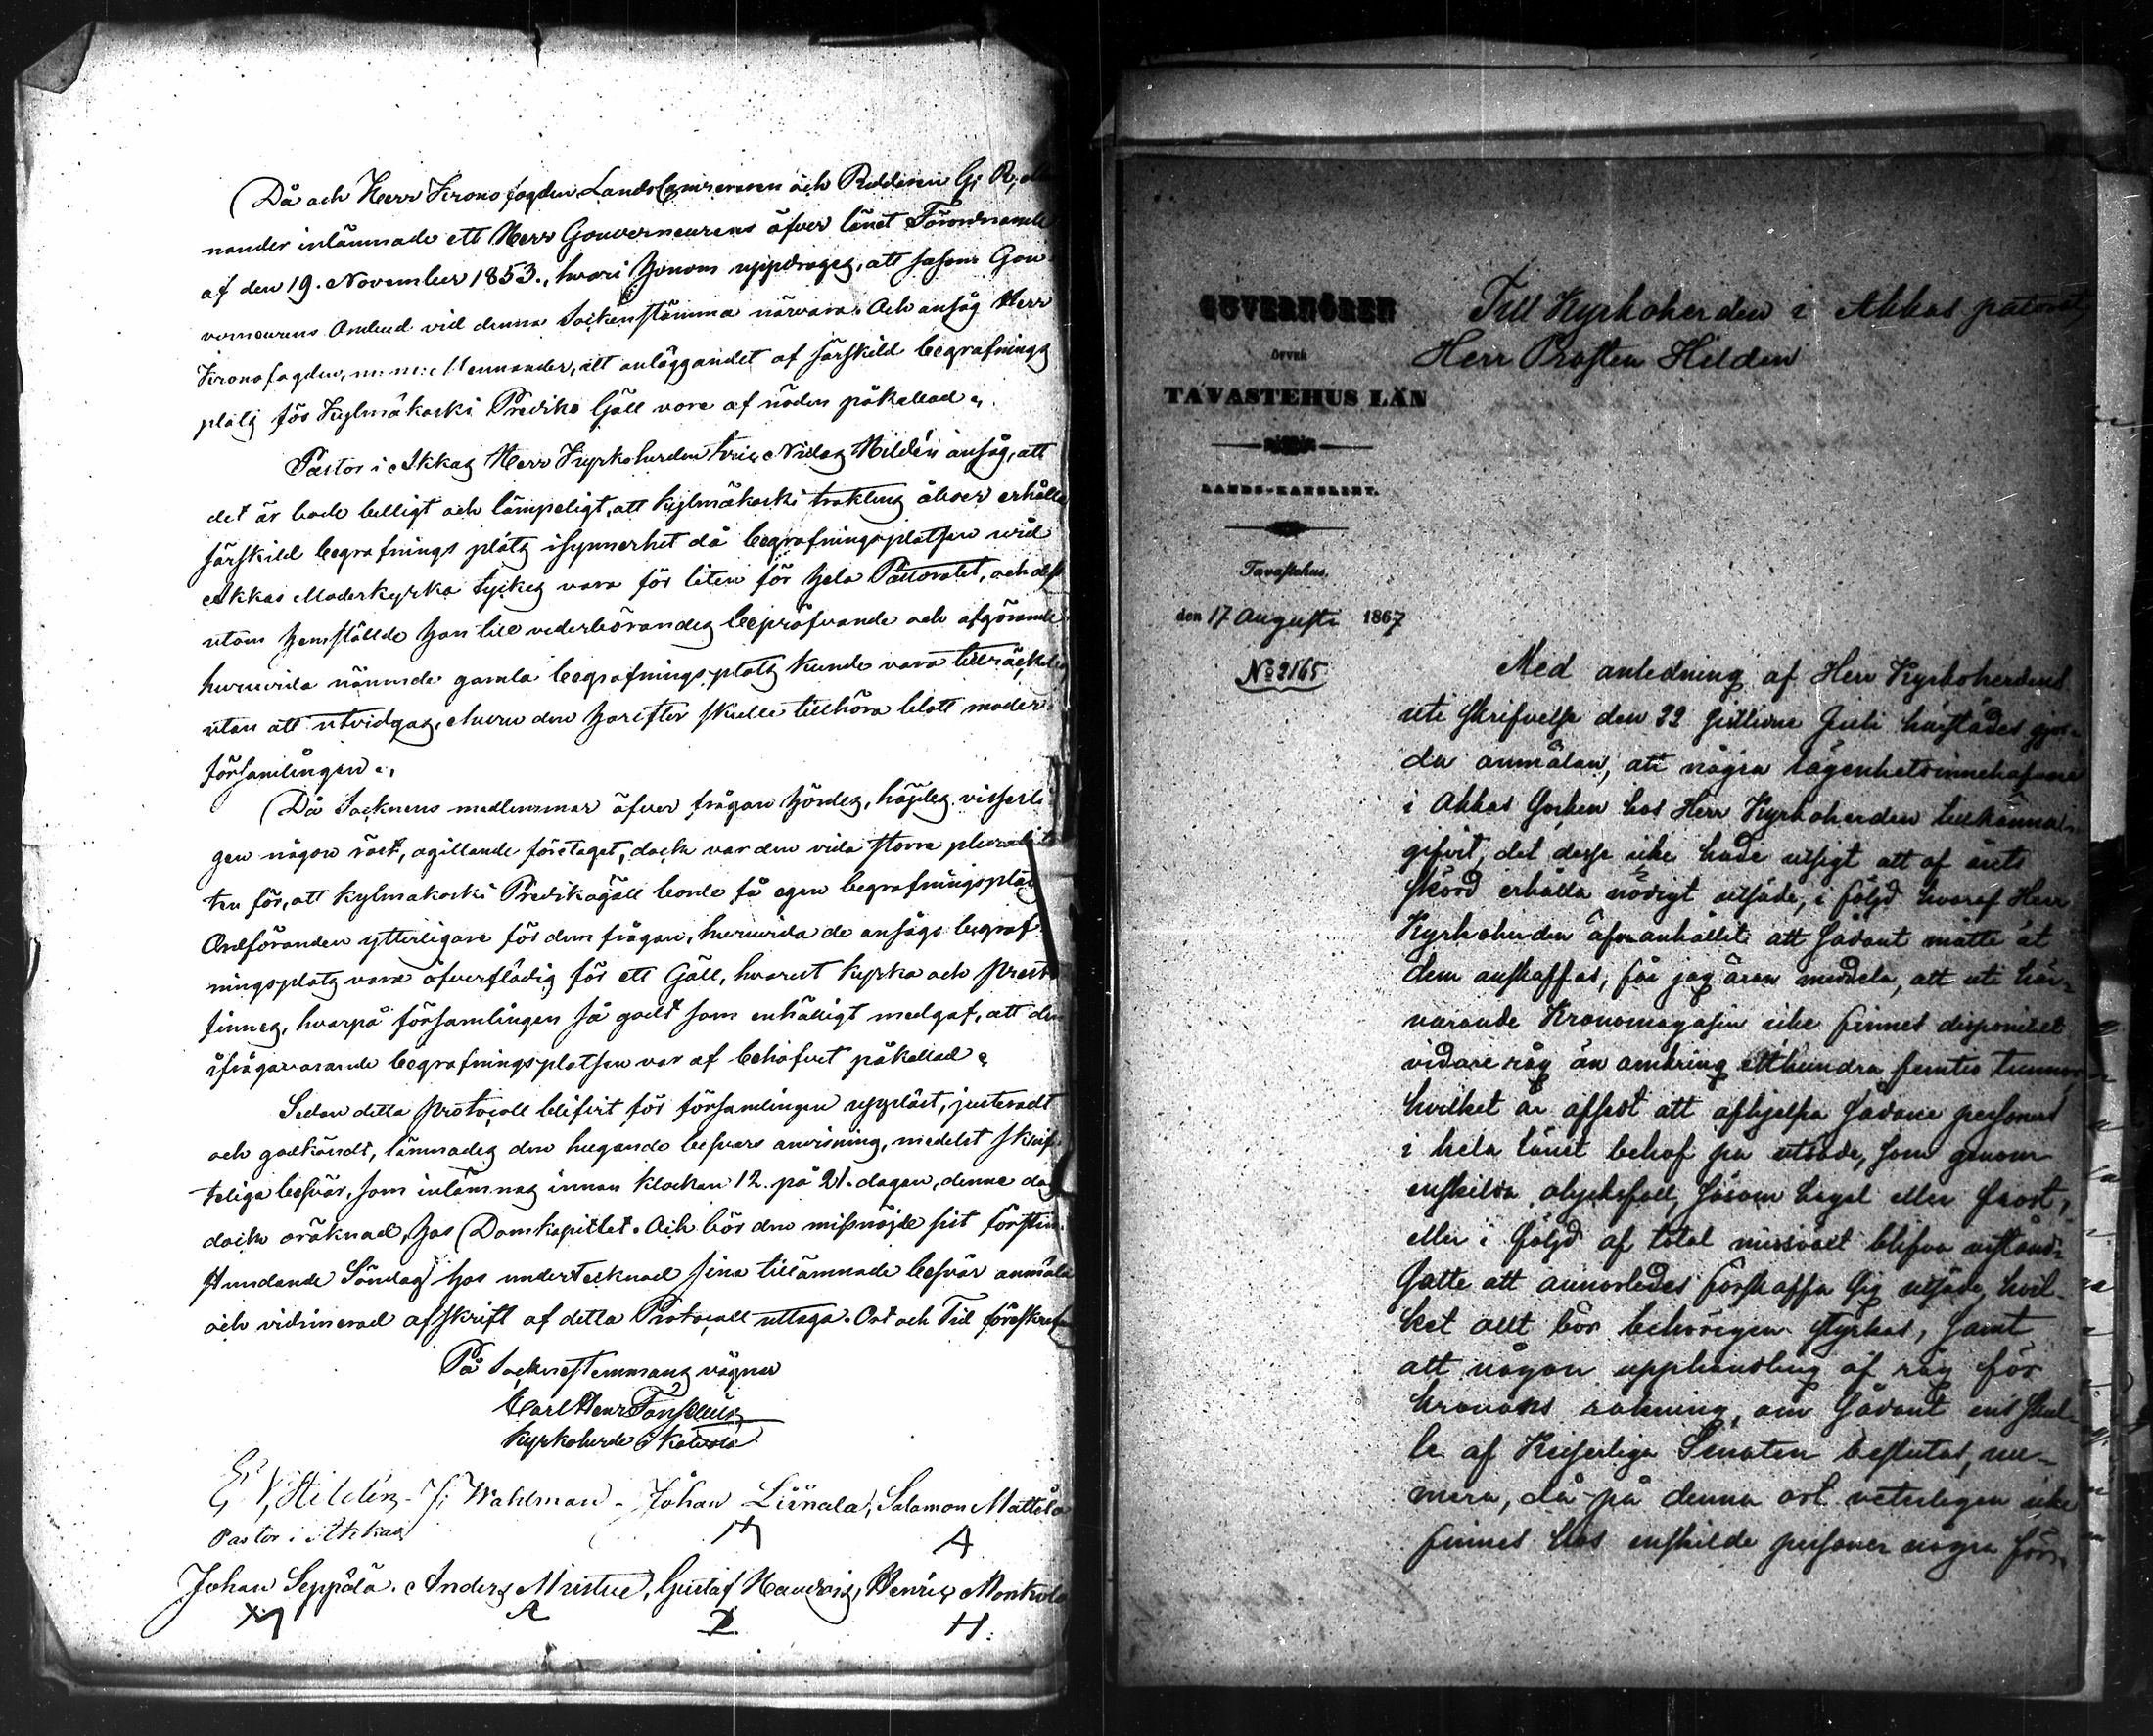 Då och Herr Kronofogden Lands Camreraren och Riddaren G: R,
nander inlämnade ett Herr Gouverneurens öfver länet Förordnande
af den 19. November 1853., hvari honom uppdrages, att såsom Gou-
verneurens Ombud vid denna Sockenstämma närvara. Och ansåg Herr
Kronofogden, m: m: Mennander, att anläggandet af särskild begrafnings
plats för Kylmäkoski Predike Gäll vore af nöden påkallad.
Pastor i Akkas Herr Kyrkoherden Eric Nidas Hildén ansåg, att
det är både billigt och lämpeligt, att Kylmäkoski trakten äfver erhålla
särskild begrafnings plats isynnerhet då begrafningsplatsen wid
Akkas Moderkyrka tyckes vara för liten för hela Pastoratet, och dess
utom hemställde han till vederbörandes bepröfvande och afgörande
huruvida nämnde gamla begrafningsplats kunde vara tillräcklig
utan att utvidgas, ehuru den hareffter skulle tillhöra blott moder-
församlingen.
Då Socknens medlemmar öfver frågan hördes, höjdes visserli-
gen någon röst, ogillande företaget, dock var den vida större plurali
ten för, att Kylmäkoski Predikogäll borde få egen begrafningsplats
Ordföranden ytterligare för dem frågan, huruvida de ansågo begraf-
ningsplats vara öfverflödig för ett Gäll, hvarest kyrka och prest
finnes, hvarpå församlingen så godt som enhälligt medgaf, att den
ifrågavarande begrafningsplatsen var af behofvet påkallad.
Sedan detta Protocoll blifvit för församlingen uppläst, justeradt
och godkändt, lämnades den hugande besvärs anvisning, medelst skrif-
teliga besvär, som inlämnas innan klockan 12. på 21. dagen, denne dag
dock oräknad, hos Domkapitlet. Och bör den missnöjde sist först in-
stundande Söndag hos undertecknad sina tillämnade besvär anmäla
och vidimerad afskrift af detta Protocoll uttaga. Ort och Tid föreskrefne
På Sockenestemmans vägnar
Carl Henr Fonselius
Kyrkoherde i Kalvola
E: N: Hildén - J: Wahlman - Johan Liinala, Salamon Mattila
Pastor i Akkas
Johan Seppälä. Anders Mustue, Gustaf Haudvig, Henric Monkola
A
H.
GUVERNÖREN
ÖFVER
TAVASTEHUS LÄN
LANDS-KANSLIET.
Tavastehus,
den 17 Augusti 1867
No 2165
Till Kyrkoherden i Akkas pastorat,
Herr Prosten Hilden
Med anledning af Herr Kyrkoherdens
uti skrifvelse den 22 sistlidne Juli härstädes gjor-
da anmälan, att några lägenhetsinnehafvare
i Akkas Socken hos Herr Kyrkoherden tillkänna-
gifvit, det desse icke hade utsigt att af årets
skörd erhålla nödigt utsäde, i följd hvaraf Herr
Kyrkoherden äfven anhållit att sådant måtte åt
dem anskaffas, får jag äran meddela, att uti här-
varande Kronomagasin icke finnes disponibelt
vidare råg än omkring etthundra femtio tunnor
hvilket är afsedt att afhjelpa sådane personers
i hela länet behof på utsäde, som genom
enskilda olycksfall, såsom hagel eller frost,
eller i följd af total missväxt blifva urstånd-
satte att annorledes förskaffa sig utsäde, hvil-
ket allt bör behörigen styrkas, samt
att någon upphandling af råg för
kronans räkning, om sådant ens skul-
le af Keiserliga Senaten beslutas, nu-
mera, då på denna ort veterligen icke
finnes hos enskilde personer några för-